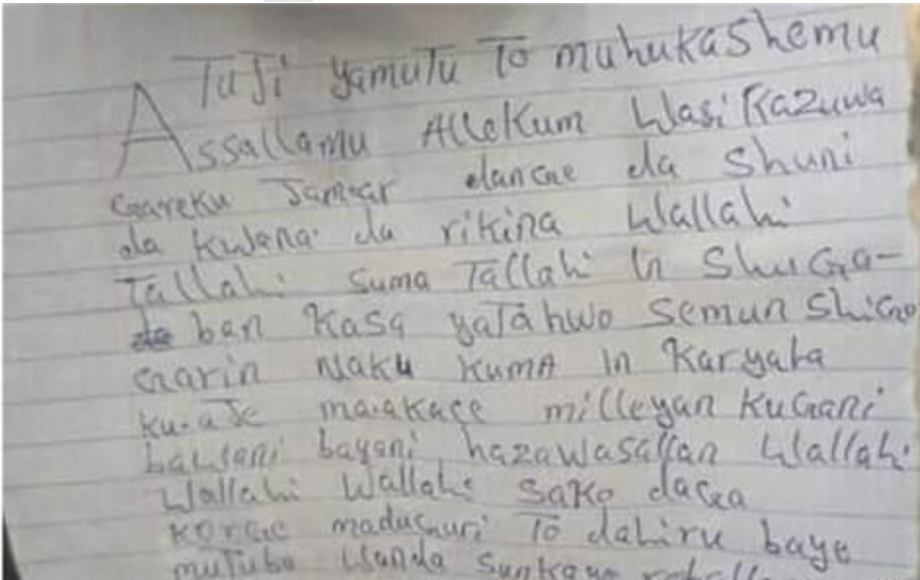 TuJi yamutu To muhukashemu
Assallamu Allekum Wasikazuwa
Gareku Jamear danGe da Shuni
da kwana da rikina Wallahi
Tallahi suma Tallahi in ShuGa-
ban Kasa yatahwo semun ShiGo
Garin Naku Kuma in Karyata
ku.aJe ma.akace milleyan kuGani
bayani hazawasallan Wallahi
Wallahi Wallahi sako daGa
madu To dahiru baye
mutubo Wanda